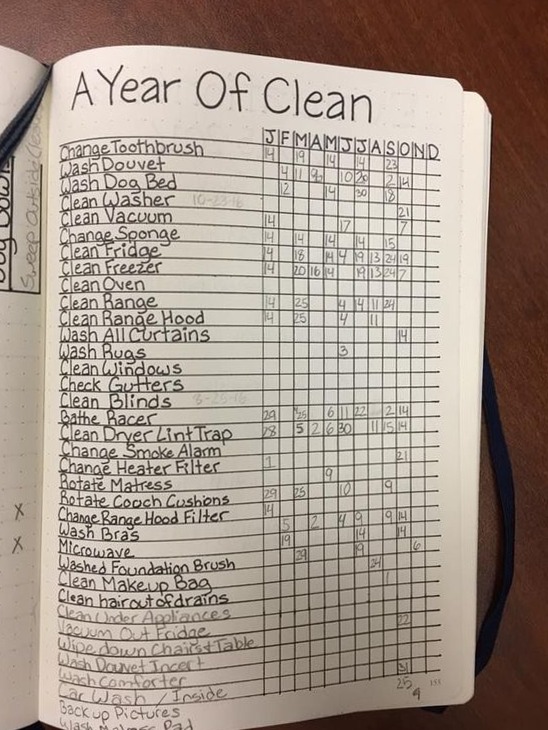 A Year Of Clean
J F M A M J J A S O N D
Change Toothbrush 14 19 14 14 23
Wash Douvet 4 11 10 20 2 14
Wash Dog Bed 12 14 30 18
Clean Washer 10-23-16 21
Clean Vacuum 14 17 7
Change Sponge 14 14 14 14 15
Clean Fridge 14 18 14 4 19 13 24 19
Clean Freezer 14 20 16 14 19 13 24 7
Clean Oven
Clean Range 14 25 4 14 11 24
Clean Range Hood 14 25 4 11
Wash All Curtains 14
Wash Rugs 3
Clean Windows
Check Gutters
Clean Blinds
Bathe Racer 29 25 6 11 22 2 14
Clean Dryer Lint Trap 28 5 2 6 30 11 15 14
Change Smoke Alarm 21
Change Heater Filter 1
Rotate Matress 9
Rotate Couch Cushions 29 25 10 9
Change Range Hood Filter 14
Wash Bras 5 2 4 9 9 14
Microwave 19 14 14
Washed Foundation Brush 29 19 6
Clean Makeup Bag 24
Clean hair out of drains 1
Clean Under Appliances
Vacuum Out Fridge 22
Wipe down Chairs & Table
Wash Douvet Incert
Wash Comforter 31
Car Wash / Inside 25 9
Backup Pictures
Pad
Sweep Outside
X
X